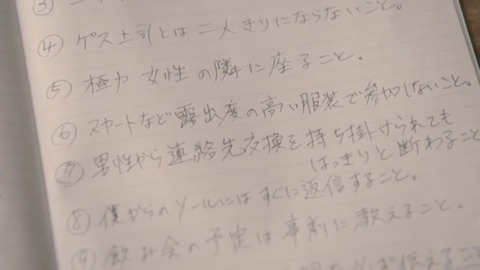 ③
④ ゲス上司とは二人きりにならないこと。
⑤ 極力 女性の隣に座ること。
⑥ スカートなど露出度の高い服装で参加しないこと。
⑦ 男性から連絡先交換を持ち掛けられても
はっきりと断わること
⑧ 僕からのメールにはすぐに返信すること。
⑨ 飲み会の予定は事前に教えること。
えること